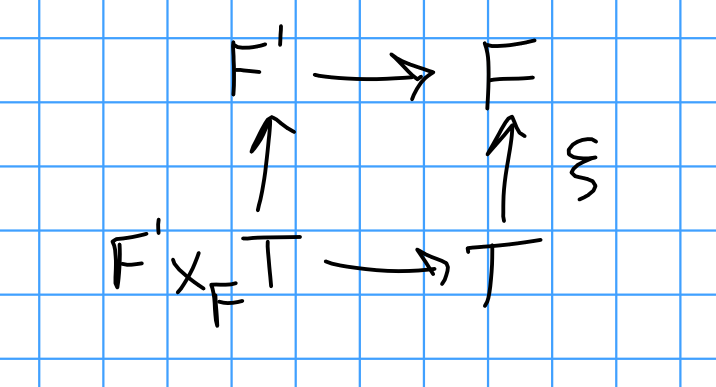 F' → F
ξ
F' ×_F T → T